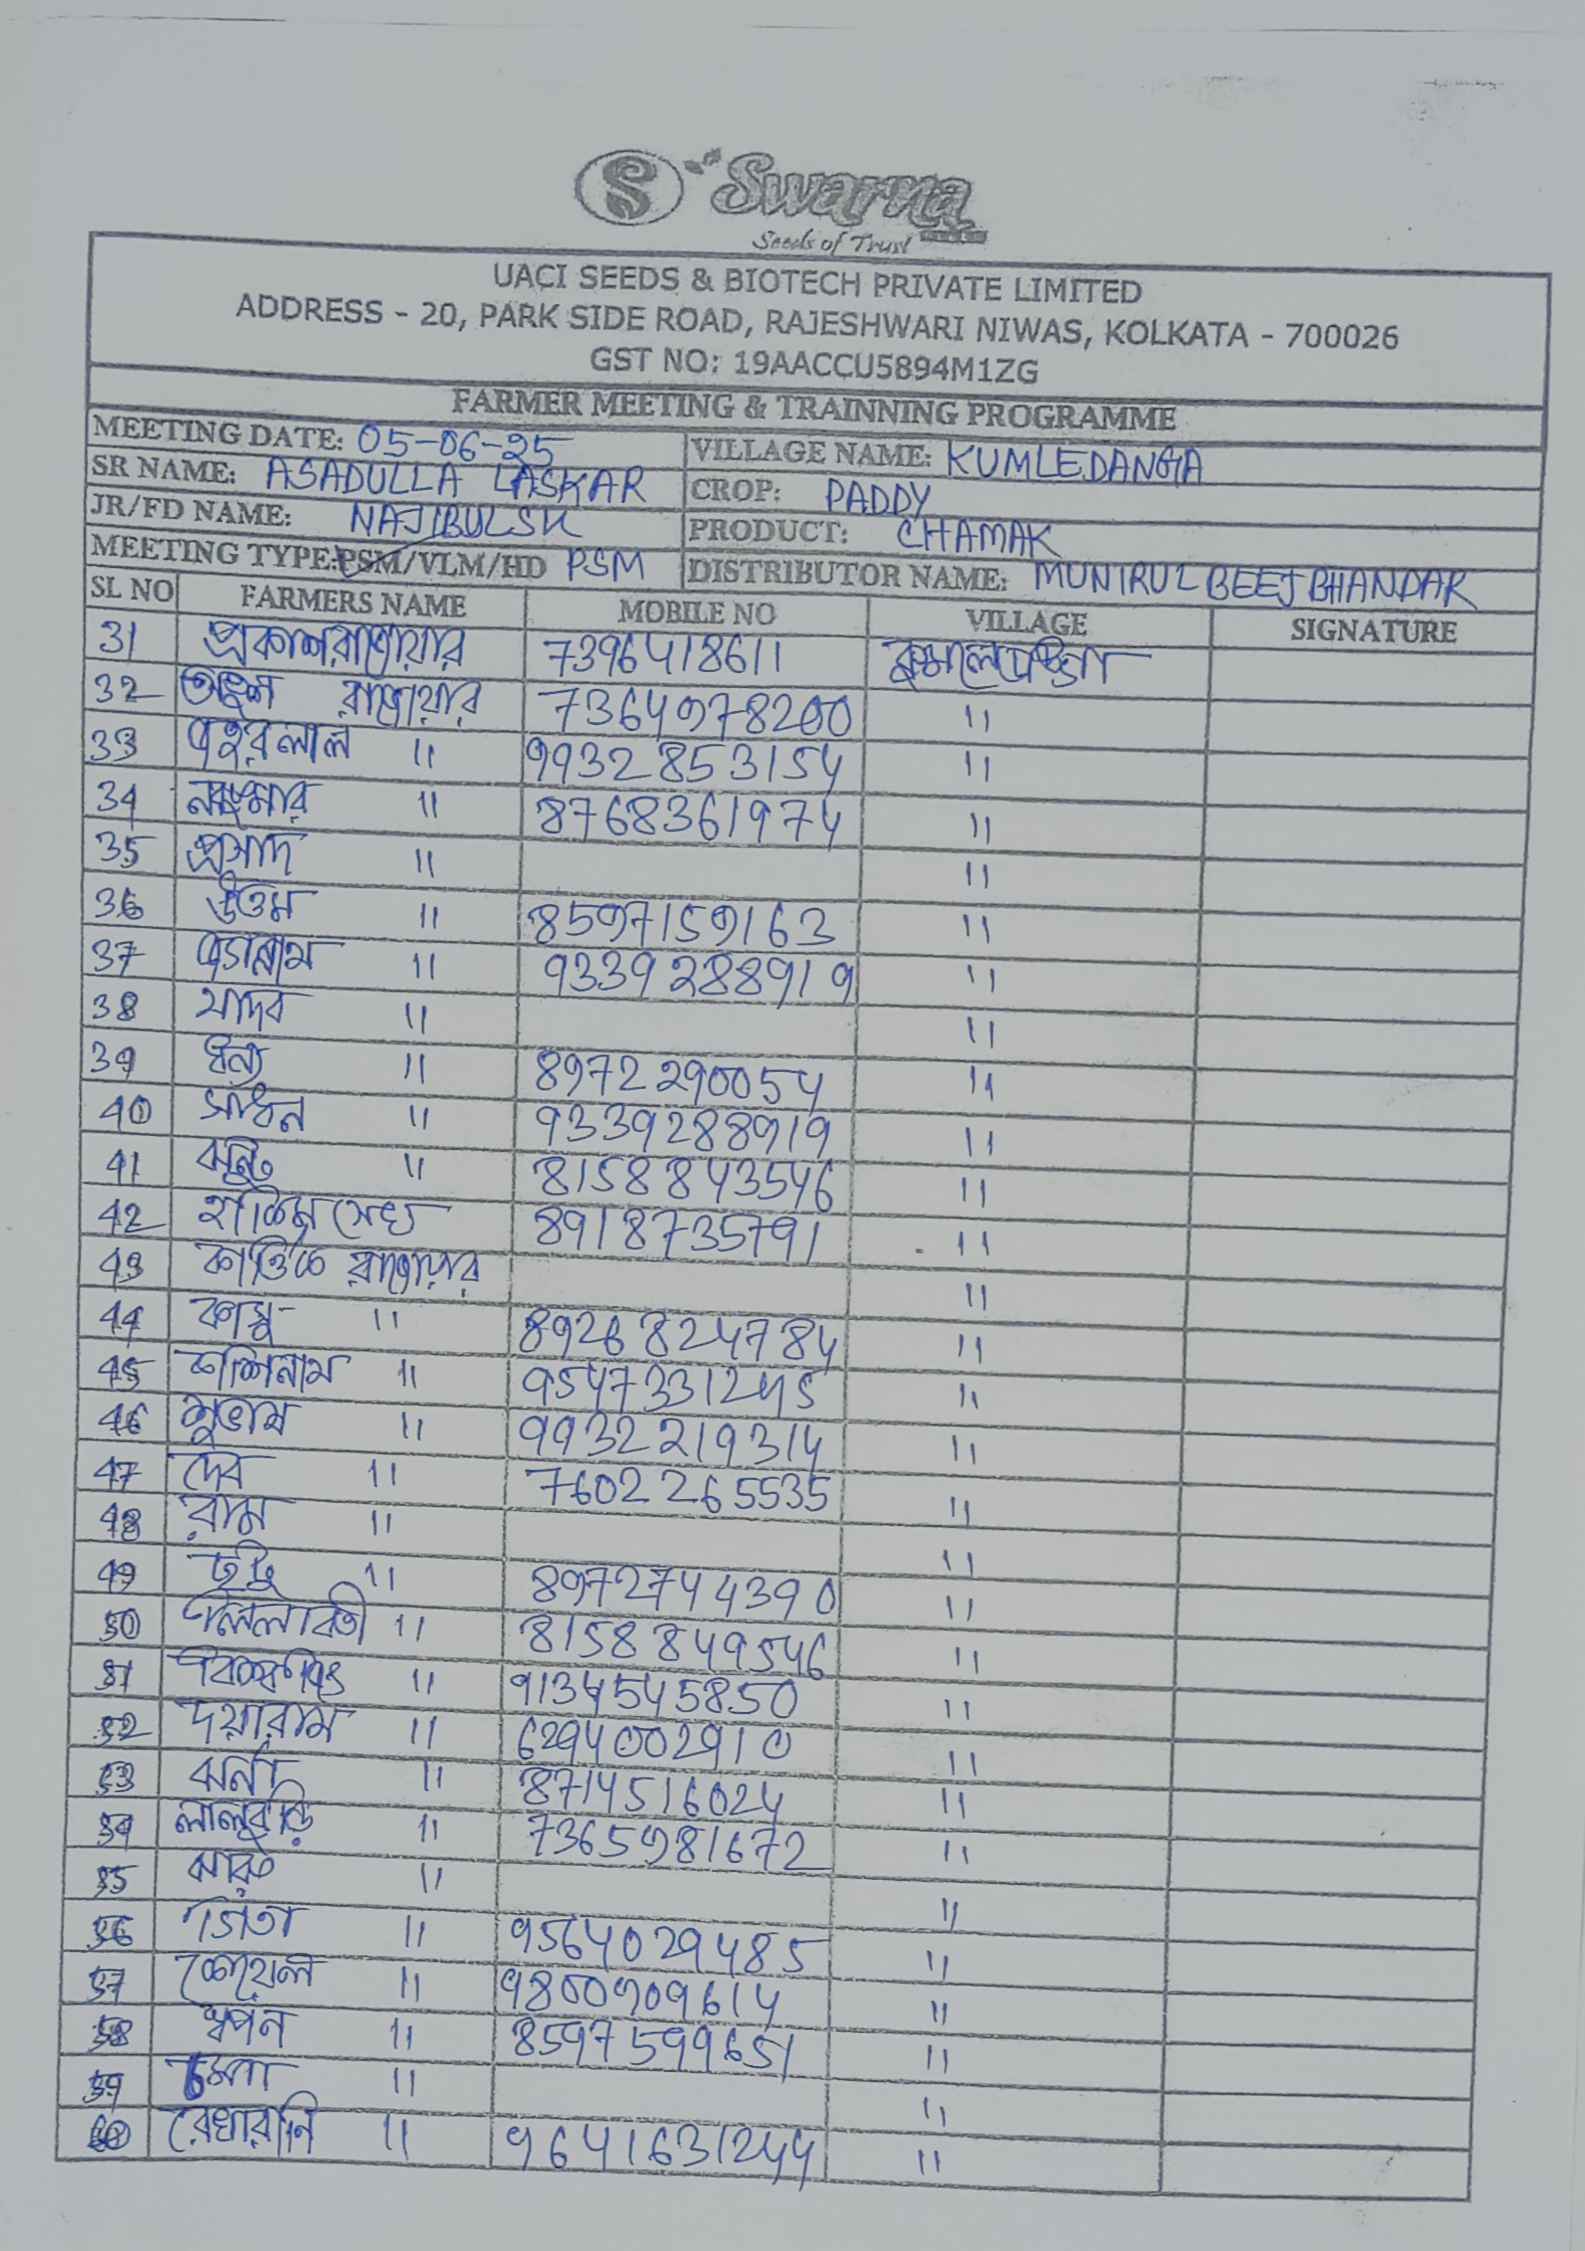 S Swarna
Seeds of Trust
UACI SEEDS & BIOTECH PRIVATE LIMITED
ADDRESS - 20, PARK SIDE ROAD, RAJESHWARI NIWAS, KOLKATA - 700026
GST NO: 19AACCU5894M1ZG
FARMER MEETING & TRAINNING PROGRAMME
MEETING DATE: 05-06-25 VILLAGE NAME: KUMLEDANGA
SR NAME: ASADULLA LASKAR CROP: PADDY
JR/FD NAME: NAJIBUL SK PRODUCT: CHAMAK
MEETING TYPE:PSM/VLM/HD PSM DISTRIBUTOR NAME: MUNIRUL BEEJ BHANDAR
SL NO FARMERS NAME MOBILE NO VILLAGE SIGNATURE
31 প্রকাশ রাজোয়ার 7396418611
32 রাজোয়ার 7364978200 "
33 জহরলাল " 9932853154 "
34 " 8768361974 "
35 প্রসাদ " "
36 উত্তম " 8597159163 "
37 " 9339288919 "
38 যাদব " "
39 ধন্য " 8972290054 "
40 সাধন " 9339288919 "
41 ঝন্টু " 8158843546 "
42 হাকিম সেখ 8918735791 "
43 কার্ত্তিক রাজোয়ার "
44 " 8926824784 "
45 কাশিনাথ " 9547331245 "
46 শুভাষ " 9932219314 "
47 দেব " 7602265535 "
48 রাম " "
49 টুটু " 8972744390 "
50 " 8158849546 "
51 " 9134545850 "
52 দয়ারাম " 6294002910 "
53 ঝর্না " 8714516024 "
54 লালবুড়ি " 7365981672 "
55 ঝারু " "
56 গিতা " 9564029485 "
57 " 9800909614 "
58 স্বপন " 8597599651 "
59 " "
60 রেখারানি " 9641631244 "